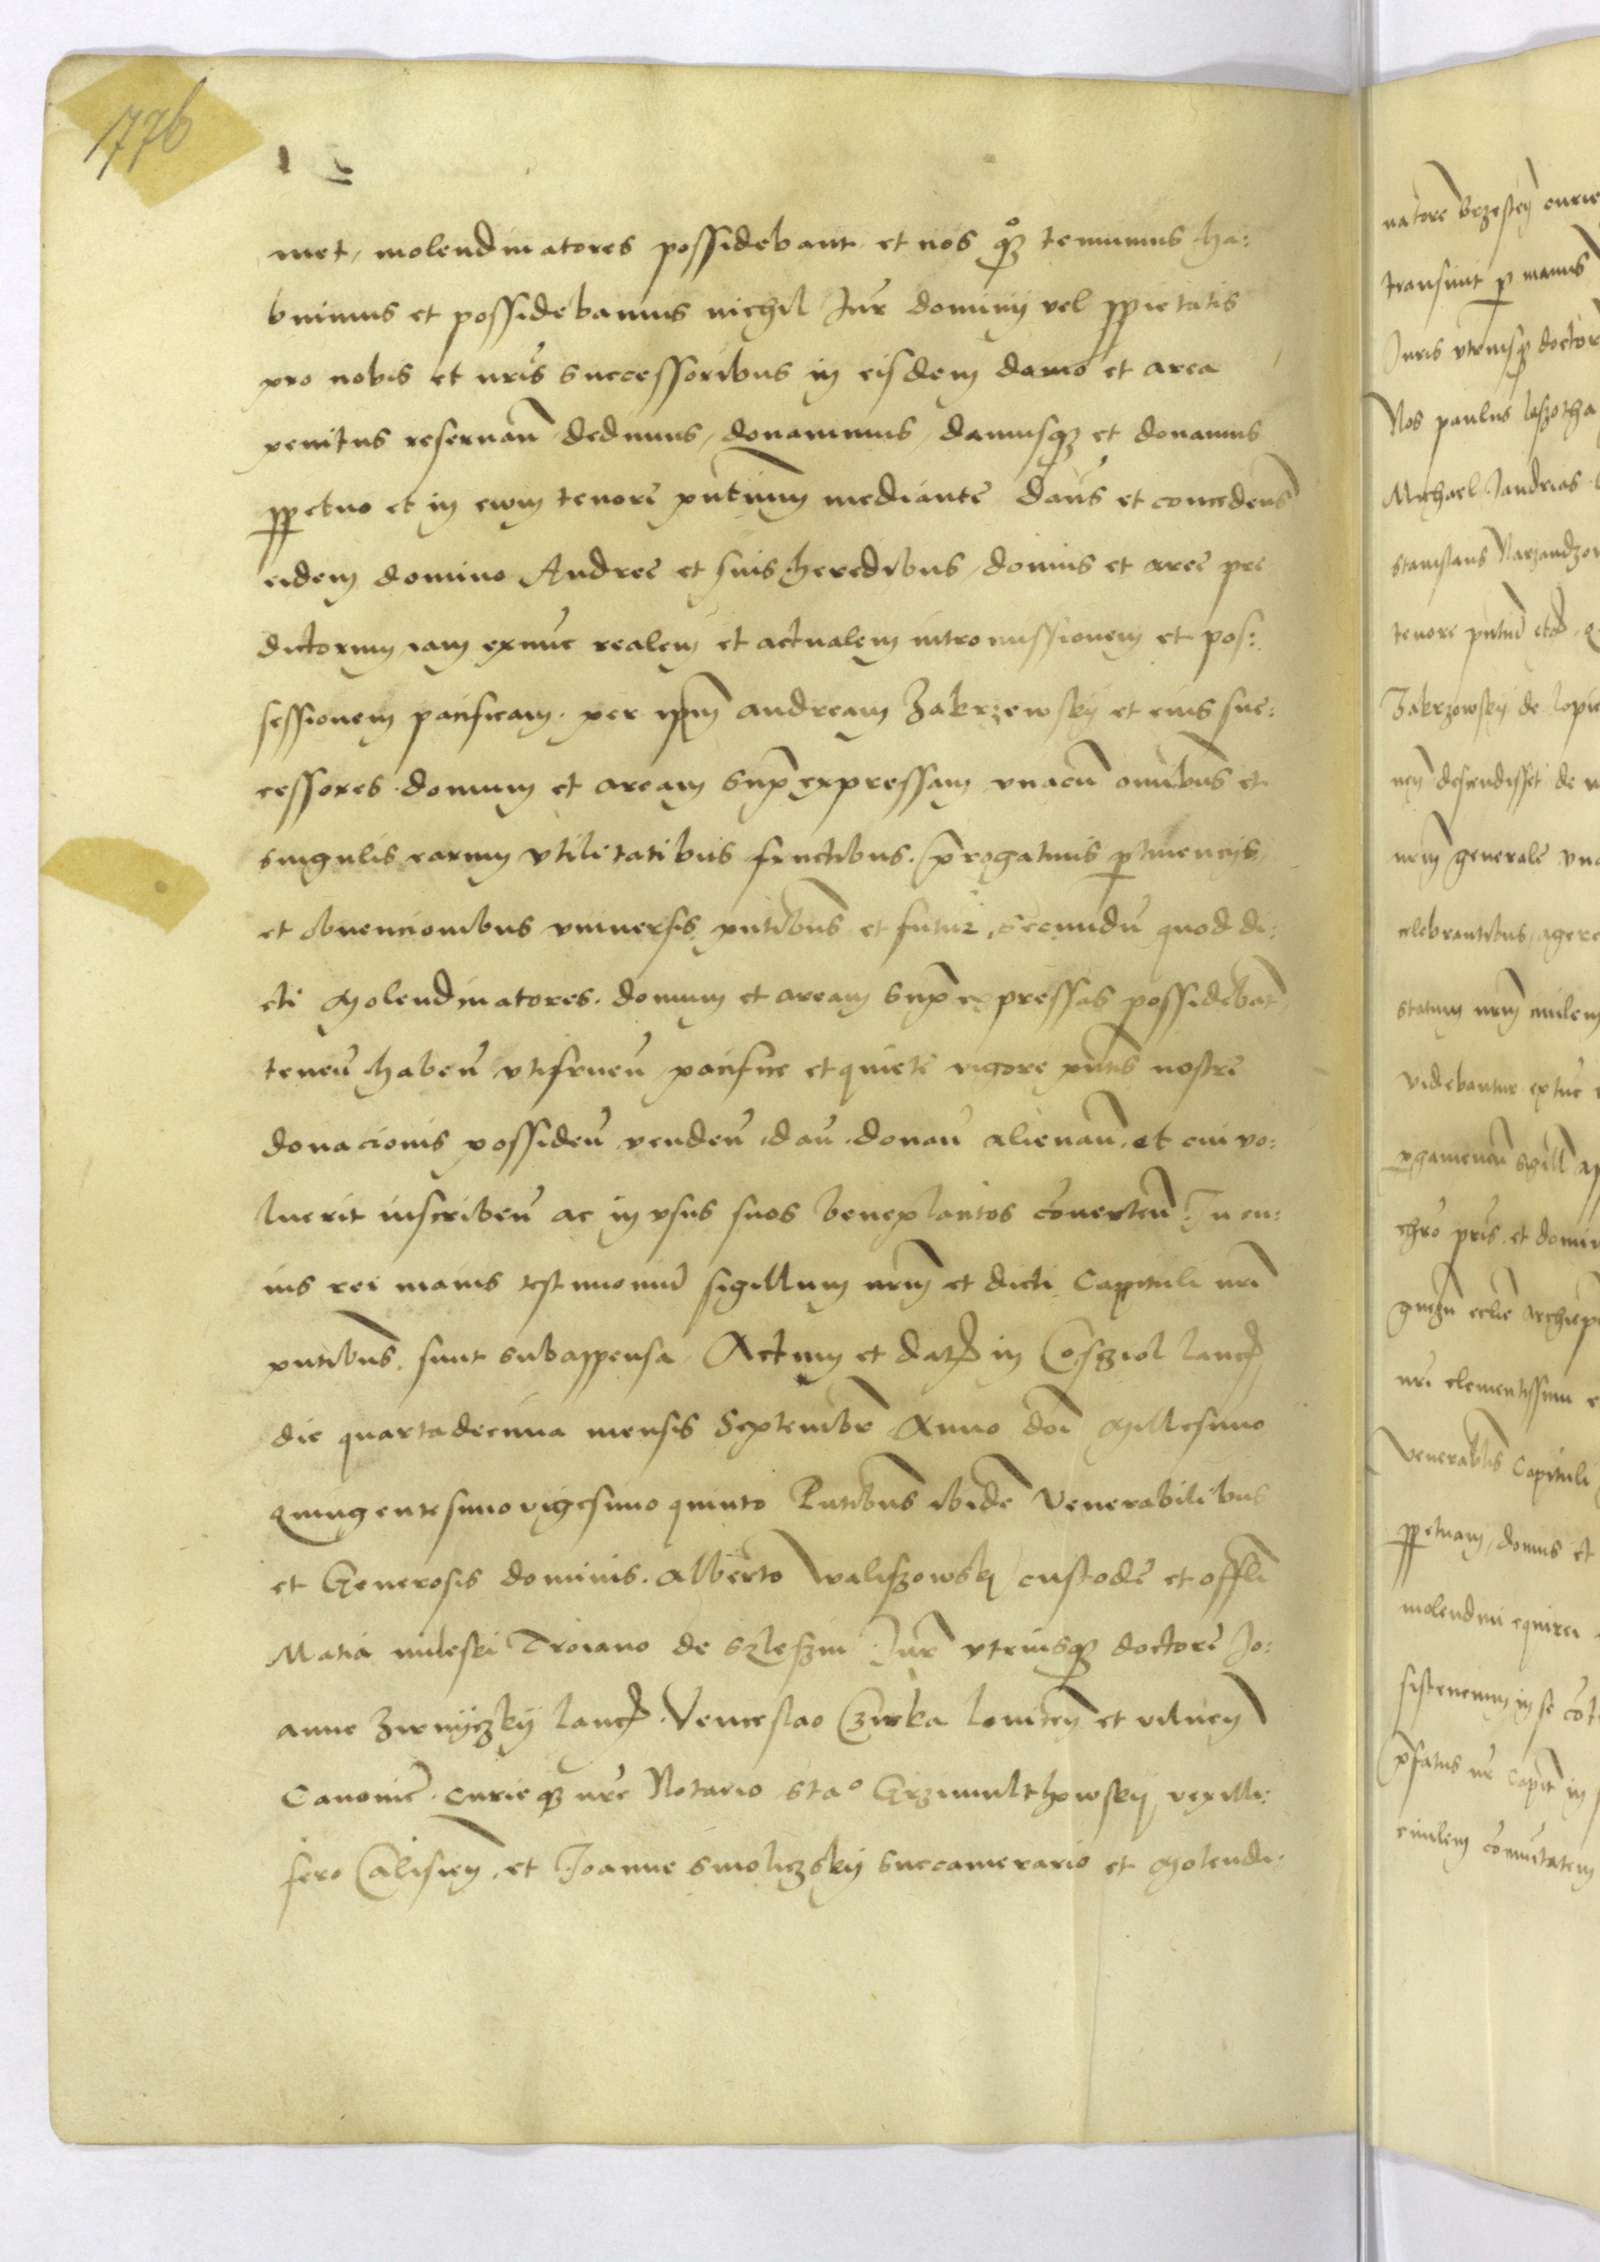 1776
met, molendinatores possidebant et nos qz̊ tenuimus ha:
buimus et possidebamus nichil Jur̃ dominij vel ppietatis
pro nobis et nr̃is successoribus in eisdem domo et area
penitus reseruan̄ dedimus, donauimus, damusqz et donamus
ppetuo et in ewm tenore pn̄tium mediante Dan̄s et concedens̄
eidem domino Andree et suis heredibus, domus et aree pre
dictorum iam exnuc realem et actualem intromissionem et pos:
sessionem pacificam. per ip̄m andream Zakrzewskij et eius suc:
cessores domum et aream sup̄expressam vnacū om̄ibus et
singulis earum vtilitatibus fructibus. p̄rogatiuis ptinencijs
et obuencionibus vniuersis pn̄tibus et futur, secundū quod di:
cti Molendinatores. domum et aream sup̄expressas possidebāt
tenen̄ haben̄ vtifruen̄ pacifice et quiete vigore pn̄tis nostre
donacionis possiden̄ venden̄ dan̄ donan̄ alienan̄ et cui vo:
luerit inscriben̄ ac in vsus suos beneplacitos cōuerten̄ In cu:
ius rei maius testimoniū sigillum nr̄m et dicti Capituli nr̄i
pn̄tibus sunt subappensa. Actum et dat in Cosziol lanc
die quartadecima mensis Septembr̄ Anno dnī Millesimo
quingentesimo vigesimo quinto Pn̄tibus ibidē Venerabilibus
et Generosis dominis. Alberto Waliszowsky custode et offlī
Matia mileski Troiano de szleszin Jur̄ vtriusqz doctore Jo:
anne Zirnyczkij lanc. Venceslao Czirka louicen̄ et vilnen̄
Canonic̄. curieqz nr̄e Notario staº Grzimulthowskij vexilli:
fero Calisien̄. et Joanne Smoliczskij succamerario et Molendi:
natore brzesten̄ curie
transiuit p manus
Juris vtriusqz doctor
Nos paulus
Michael
tenore pn̄tiū
Zakrzowskij de lopie
nem descendisset de
nr̄m generale vna
celebrantibus, agere
statum nr̄m ciuilem
videbantur extūc
sigill ap
chr̄o pr̄is et domi
gnezn̄ ecclīe Archiep̄
nr̄i clementissimi
Venerablis Capituli
ppetuam, domus et
molendini equirei
sistencium in se
p̄fatus nr̄ Capit in
ciuilem cōmutatem